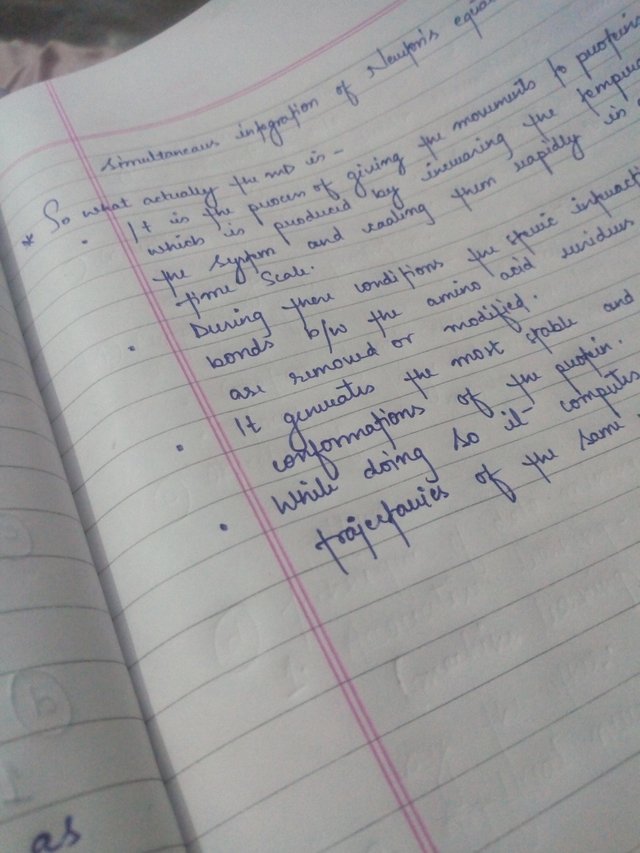 simultaneous integration of Newton's equa
* So what actually the MD is -
· It is the process of giving the movements to protein
which is produced by increasing the tempera
the system and cooling them rapidly in a
time scale.
· During these conditions the steric interacti
bonds b/w the amino acid residues
are removed or modified.
· It generates the most stable and
conformations of the protein.
· While doing so it computes
trajectories of the same.
as